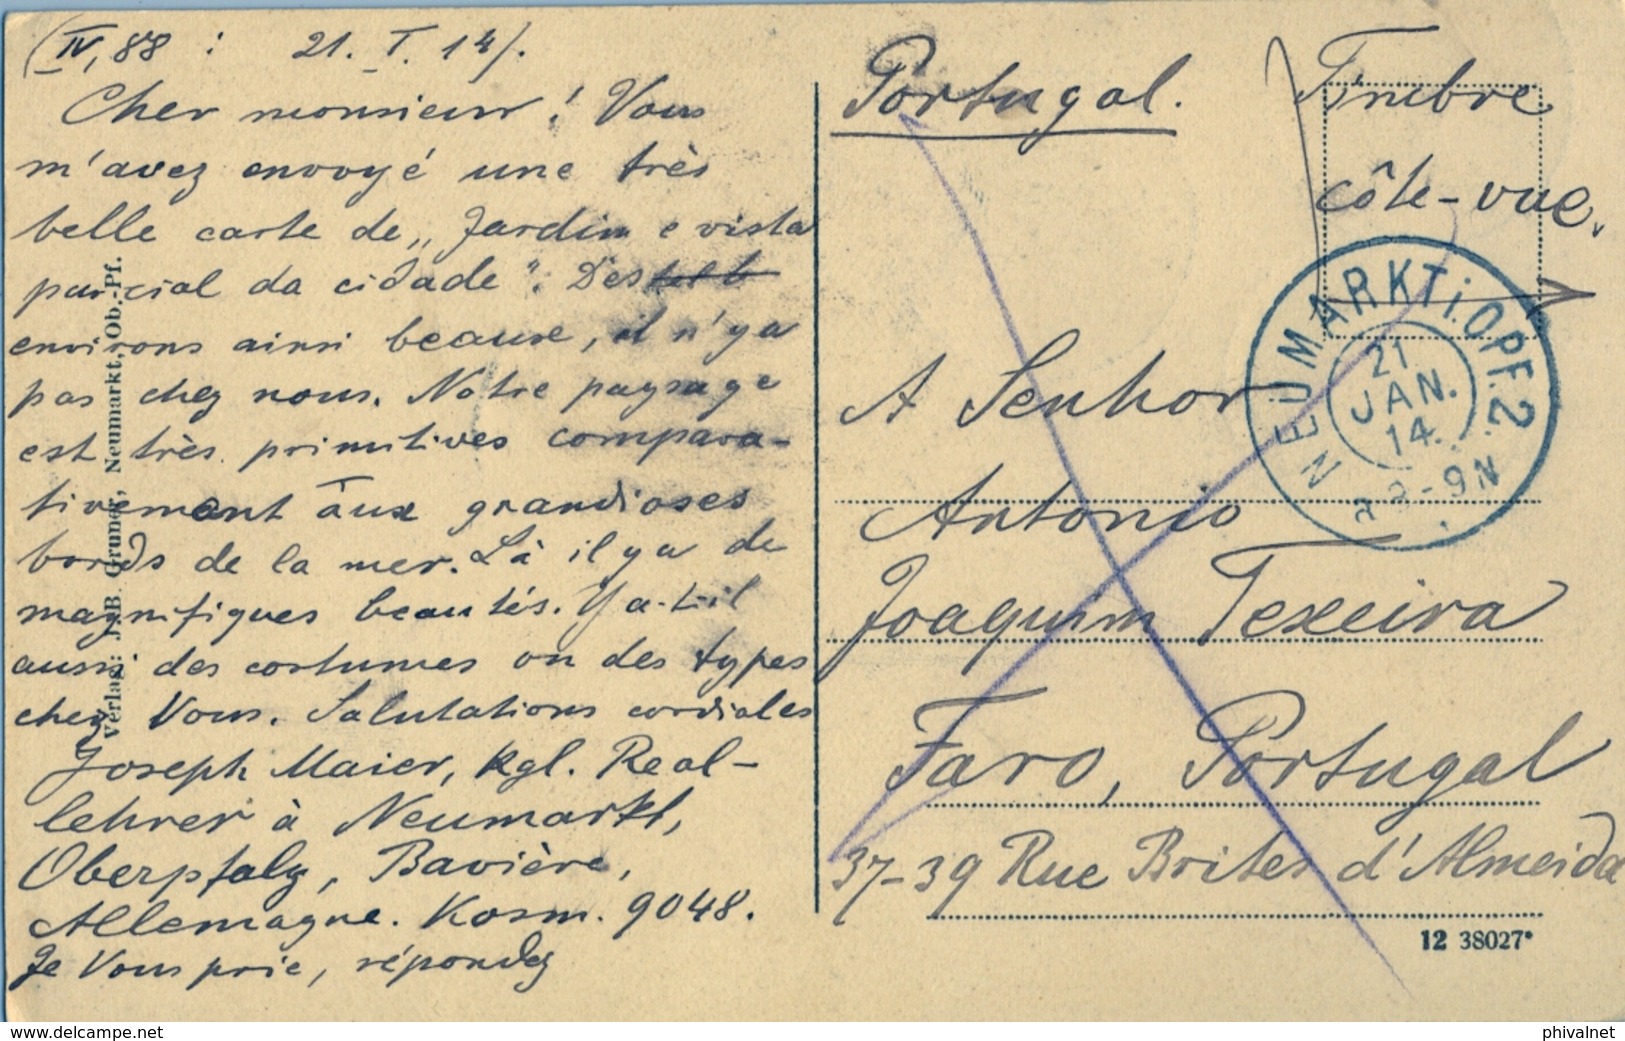 (IV, 88 : 21. I. 14).
Cher monsieur! Vous
m'avez envoyé une très
belle carte de „Jardim e vista
parcial da cidade". Des
environs ainsi beaux, il n'ya
pas chez nous. Notre paysage
est très primitives compara-
tivement aux grandioses
bords de la mer. Là il ya de
magnifiques beautés. Y a-t-il
aussi des costumes ou des types
chez Vous. Salutations cordiales
Joseph Maier, kgl. Real-
lehrer à Neumarkt,
Oberpfalz, Bavière,
Allemagne. Kosm. 9048.
Je Vous prie, répondez
Verlag: J. B. Gruner, Neumarkt, Ob.-Pf.
Portugal.
Timbre
côte-vue.
NEUMARKT i. OPF. 2
21
JAN.
14.
8-9N
A Senhor
Antonio
Joaquim Texeira
Faro, Portugal
37-39 Rue Brites d'Almeida
12 38027*
www.delcampe.net
phivalnet